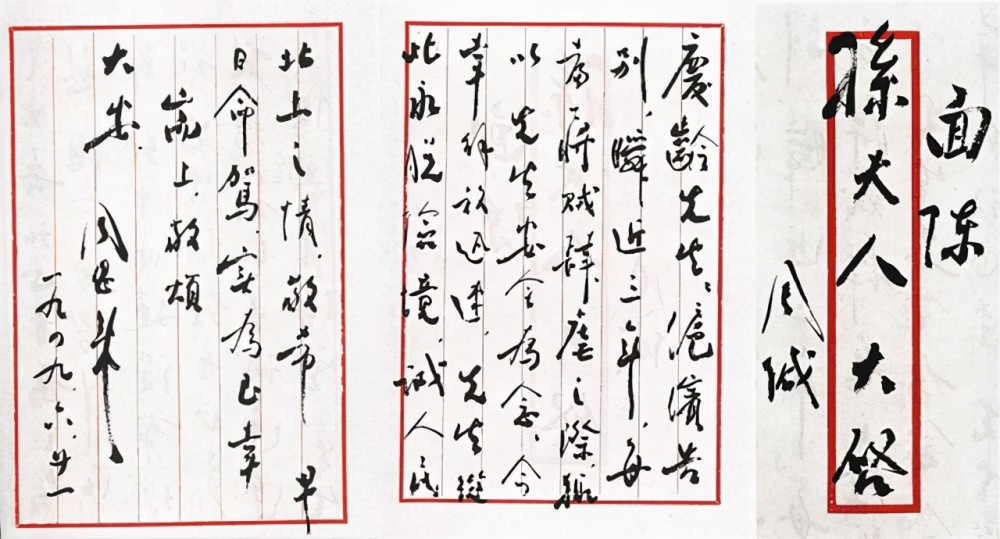 面陈
孫夫人大啓
周緘
慶齡先生：滬濱告
別，瞬近三年，每
當蔣賊肆虐之際，輒
以先生安全為念，今
幸解放迅速，先生從
此永脫險境，誠人民
北上之情，敬希早
日命駕，實為至幸
耑上，敬頌
大安，
周恩来
一九四九、六、廿一